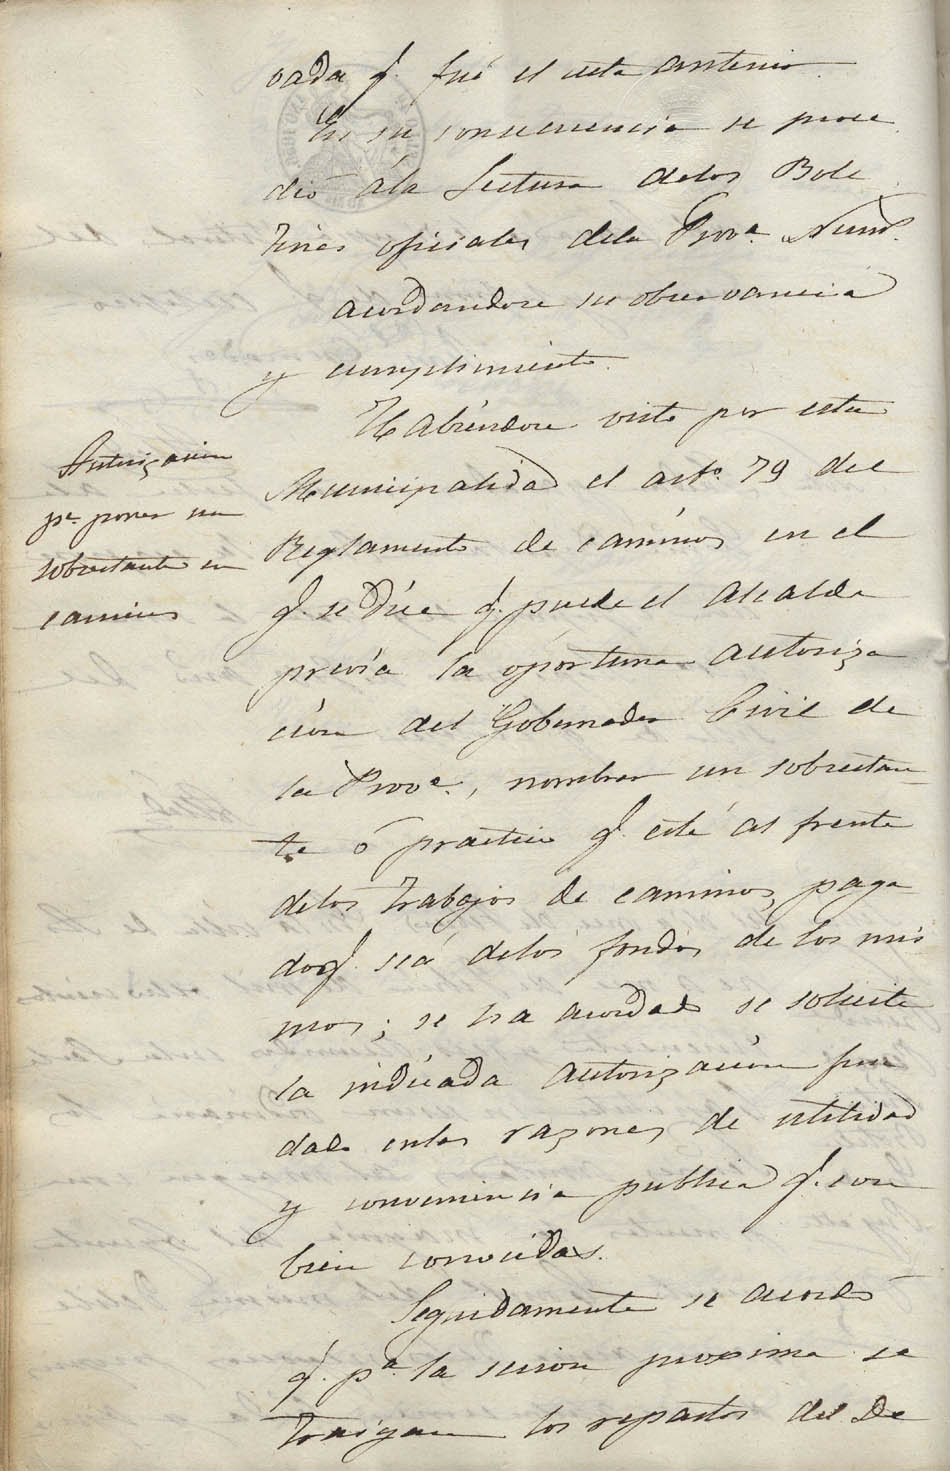 vada q.e fué el acta anterior.
En su consecuencia se proce
dió á la Lectura delos Bole
tines oficiales dela Prov.a Num.s
acordandose su observancia
y cumplimiento.
Habiendose visto por esta
Municipalidad el art.o 79 del
Reglamento de caminos en el
q.e se dice q.e puede el Alcalde
previa la oportuna autoriza
ción del Gobernador Civil de
la Prov.a, nombrar un sobrestan
te ó practico q.e esté al frente
delos trabajos de caminos, paga
do q.e sea delos fondos de los mis
mos; se ha acordado se solicite
la indicada autorización fun
dada enlas razones de utilidad
y conveniencia publica q.e son
bien conocidas.
Seguidamente se acordó
q.e p.a la sesion proxima se
traigan los repartos del De
Autorizacion
p.a poner un
sobrestante en
caminos